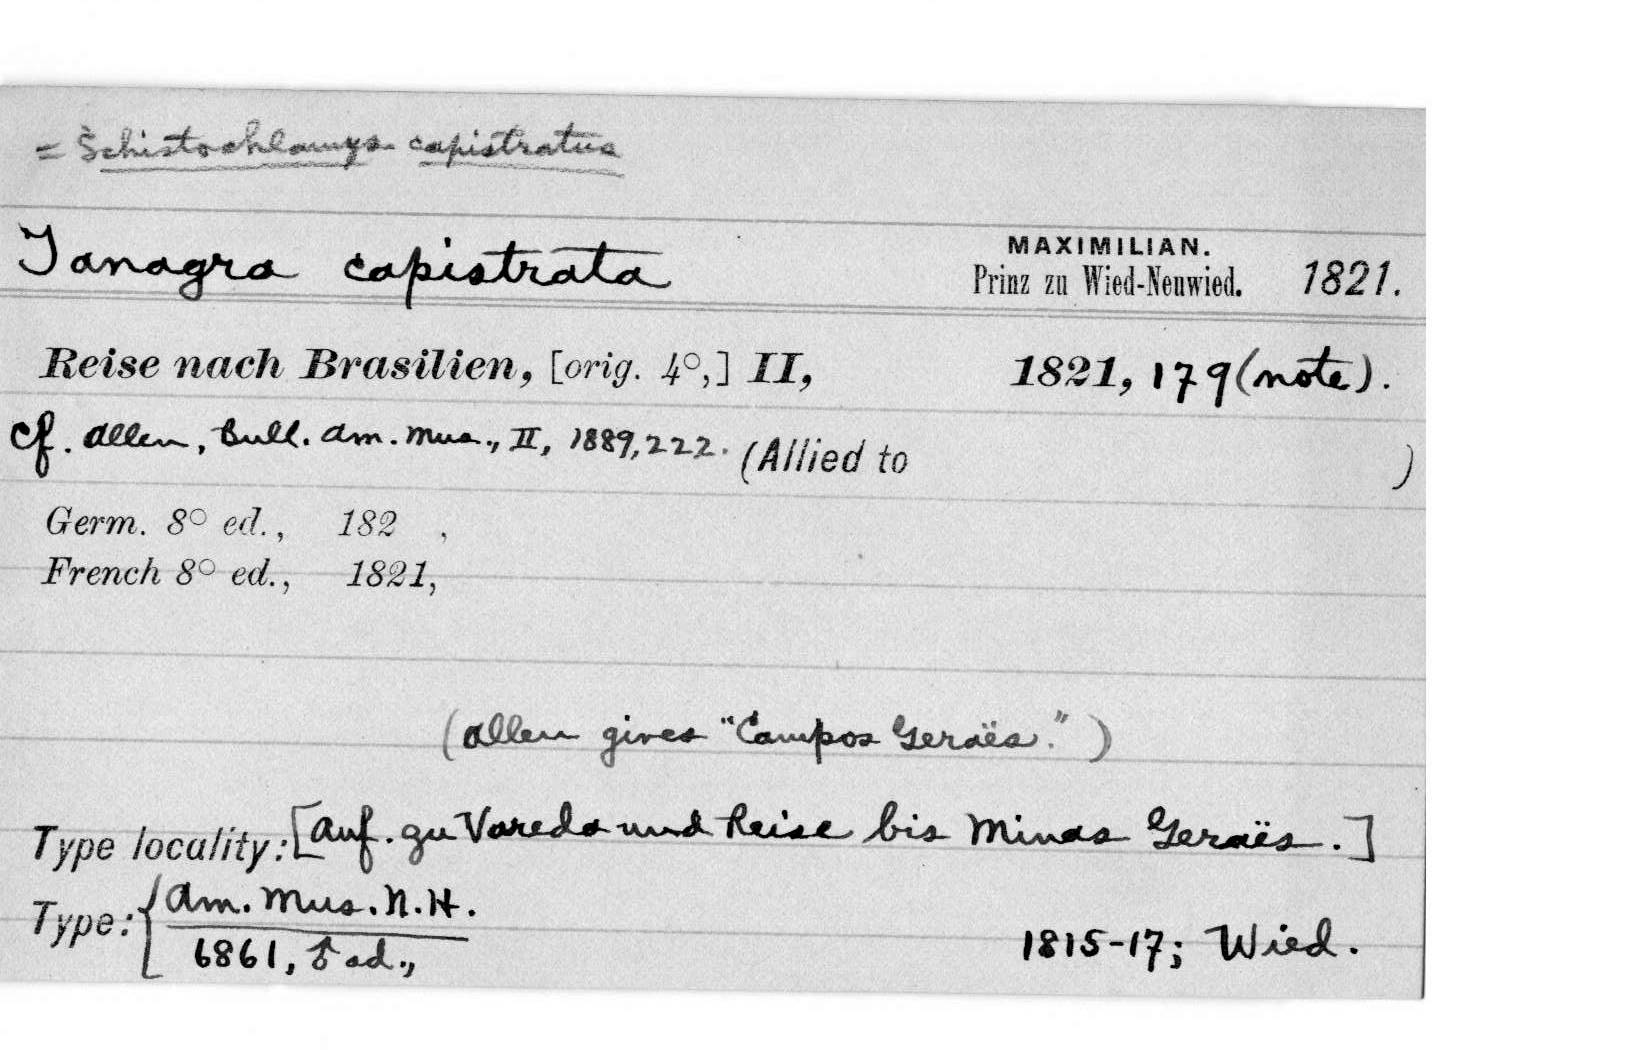 = Schistochlamys capistratus
Tanagra capistrata MAXIMILIAN. Prinz zu Wied-Neuwied. 1821.
Reise nach Brasilien, [orig. 4°,] II, 1821, 179 (note).
cf. Allen, Bull. Am. Mus., II, 1889, 222. (Allied to )
Germ. 8° ed., 182 ,
French 8° ed., 1821,
(Allen gives "Campos Geraës.")
Type locality: [Auf. zu Vareda und Reise bis Minas Geraës.]
Type: { Am. Mus. N. H.
6861, ♂ ad., 1815-17; Wied.